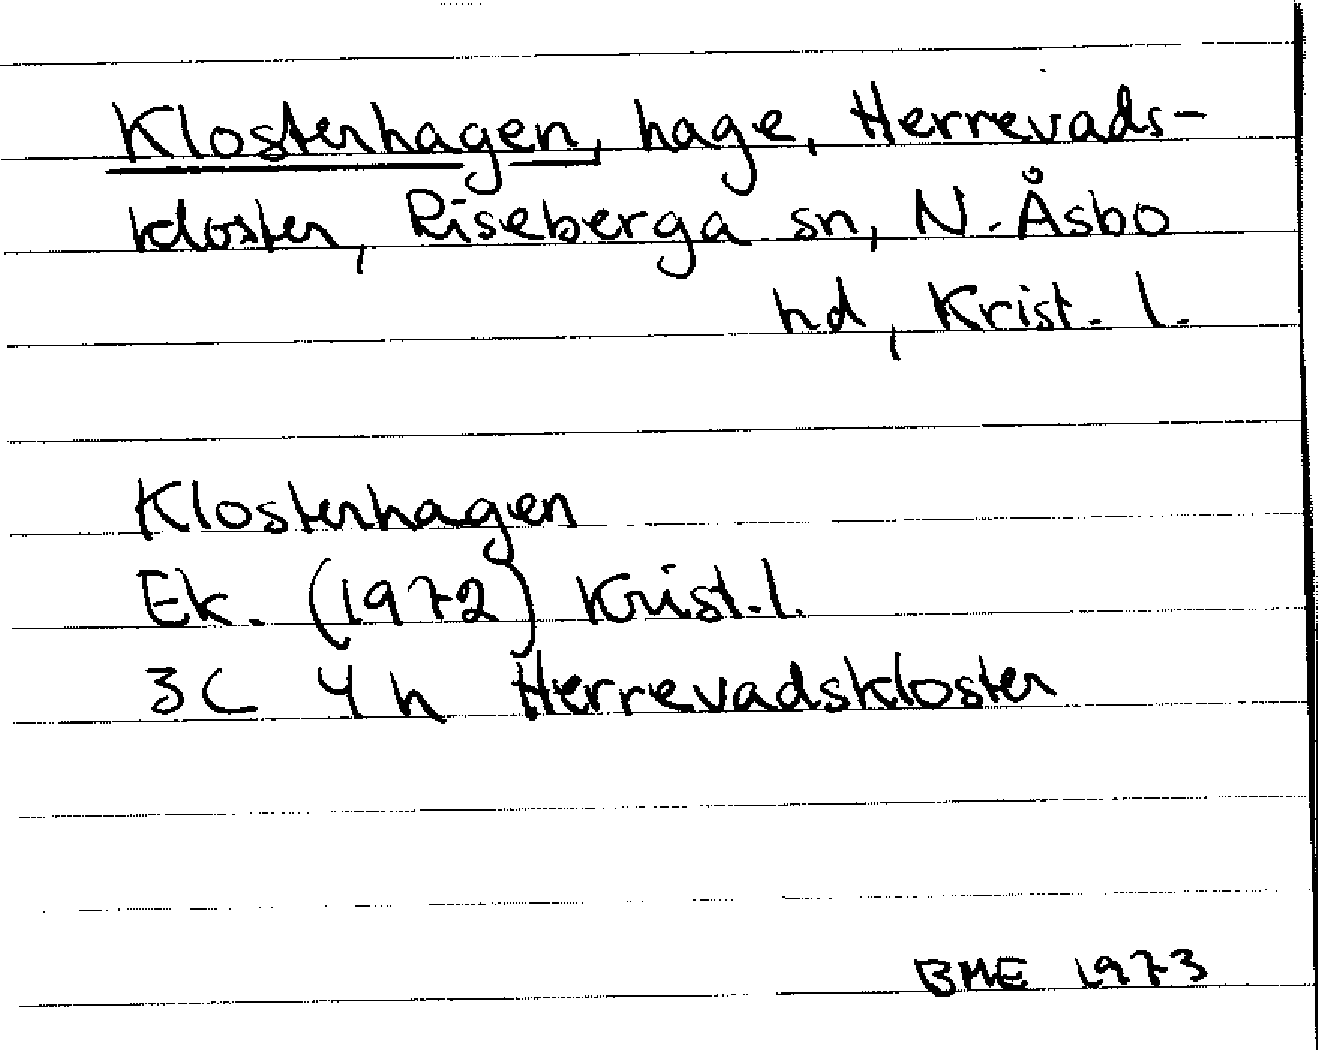 Klosterhagen, hage, Herrevads-
kloster, Riseberga sn, N. Åsbo
hd, Krist. l.
Klosterhagen
Ek. (1972) Krist. l.
3C 4h Herrevadskloster
BME 1973